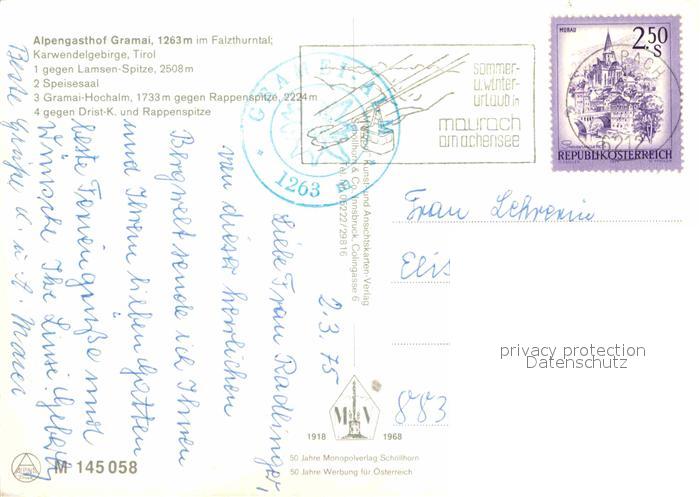 Alpengasthof Gramai, 1263 m im Falzthurntal;
Karwendelgebirge, Tirol
1 gegen Lamsen-Spitze, 2508 m
2 Speisesaal
3 Gramai-Hochalm, 1733 m gegen Rappenspitze, 2224 m
4 gegen Drist-K. und Rappenspitze
sommer-
u. winter-
urlaub in
maurach
am achensee
MURAU
2.50
S
REPUBLIK ÖSTERREICH
GRAMAIALM
1263 m
Kunst- und Ansichtskarten-Verlag
Schöllhorn & Co., Innsbruck, Colingasse 6
Tel. 05222/29816
2.3.75
Liebe Frau Radlinger,
von dieser herrlichen
Bergwelt sende ich Ihnen
und Ihrem lieben Gatten
beste Feriengrüße und
Wünsche Ihr
Beste Grüße
Frau Lehrerin
Elis
883
privacy protection
Datenschutz
M V
1918 1968
50 Jahre Monopolverlag Schöllhorn
50 Jahre Werbung für Österreich
ALPINE
M 145 058